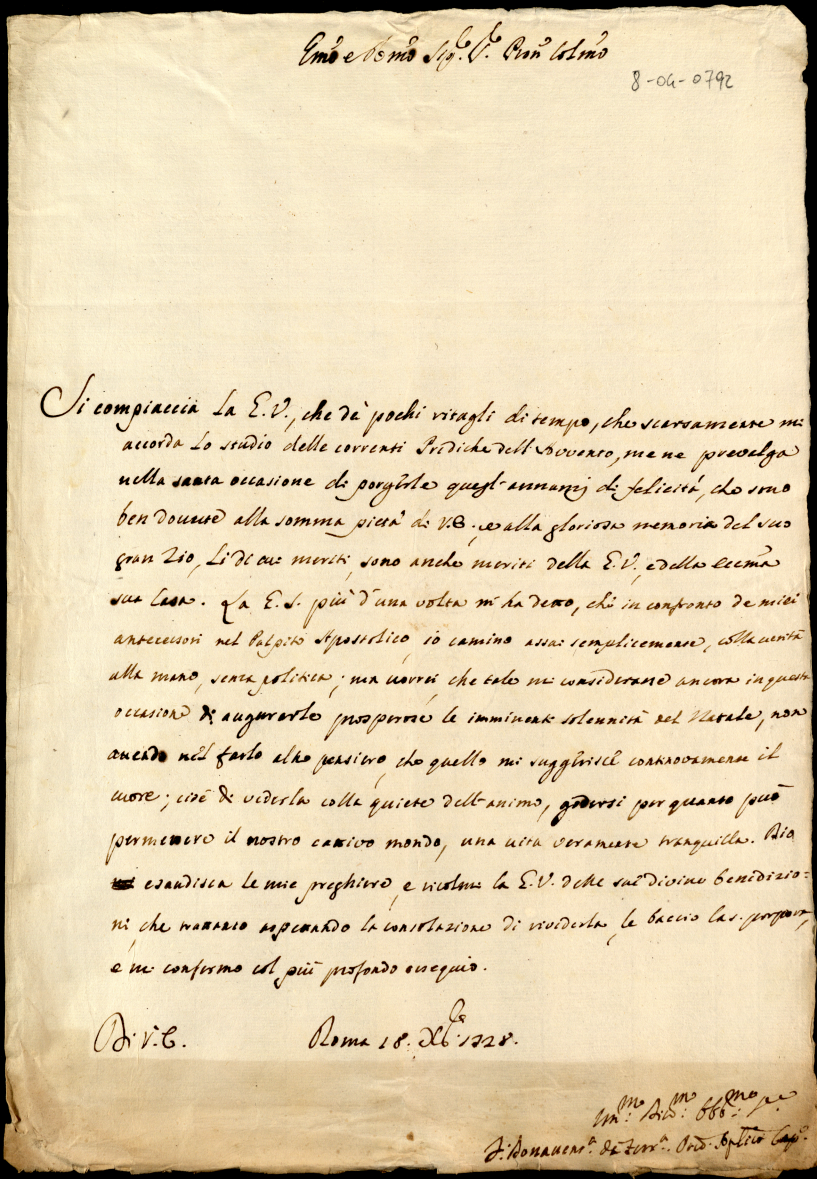 Emo e Remo Sig.re P.rone Colmo
8-04-0792
Si compiaccia la E.V., che dè pochi ritagli di tempo, che scarsamente mi
accorda lo studio delle correnti Prediche dell'Avvento, me ne prevalga
nella santa occasione di porgerle quegl'annunzj di felicità, che sono
ben dovute alla somma pietà di V.E., e alla gloriosa memoria del suo
gran Zio, li di cui meriti, sono anche meriti della E.V., e della Eccma
sua Casa. La E.S. più d'una volta m'ha detto, che in confronto de miei
antecessori nel Pulpito Apostolico, io camino assai semplicemente, colla verità
alla mano, senza politica; ma vorrei, che tale mi considerasse ancora in questa
occasione di augurarle prosperose le imminenti solennità del Natale, non
avendo nel farlo altro pensiero, che quello mi suggerisce continovamente il
cuore; cioè di vederla colla quiete dell'animo, godersi per quanto può
permettere il nostro cattivo mondo, una vita veramente tranquilla. Dio
esaudisca le mie preghiere, e ricolmi la E.V. delle sue divine benedizio=
ni, che trattanto aspettando la consolazione di rivederla, le baccio la s. porpora,
e mi confermo col più profondo ossequio.
Di V.E. Roma 18. Xbre 1728.
Um:mo Dev:mo Obb:mo se
F. Bonavent.a da Ferr.a Pred. Aplico Capo.